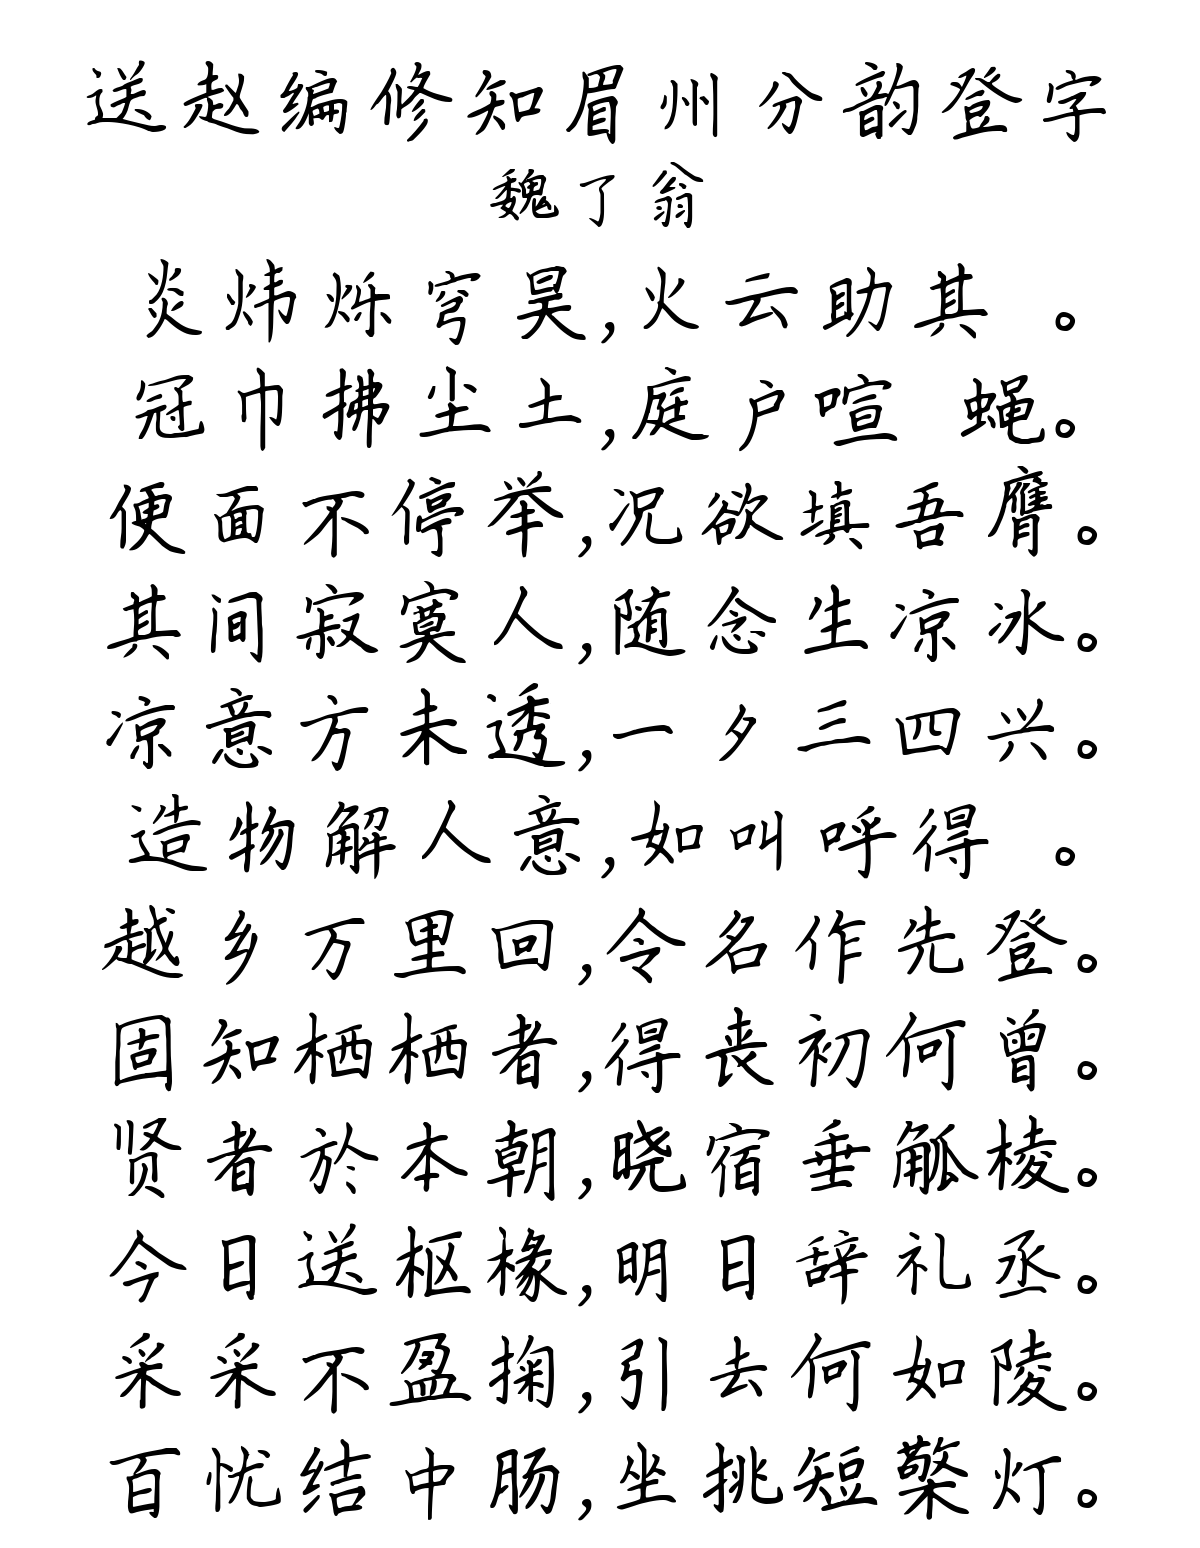 送赵编修知眉州分韵登字
魏了翁
炎炜烁穹昊,火云助其 。
冠巾拂尘土,庭户喧 蝇。
便面不停举,况欲填吾膺。
其间寂寞人,随念生凉冰。
凉意方未透,一夕三四兴。
造物解人意,如叫呼得 。
越乡万里回,令名作先登。
固知栖栖者,得丧初何曾。
贤者於本朝,晓宿垂觚棱。
今日送枢椽,明日辞礼丞。
采采不盈掬,引去何如陵。
百忧结中肠,坐挑短檠灯。